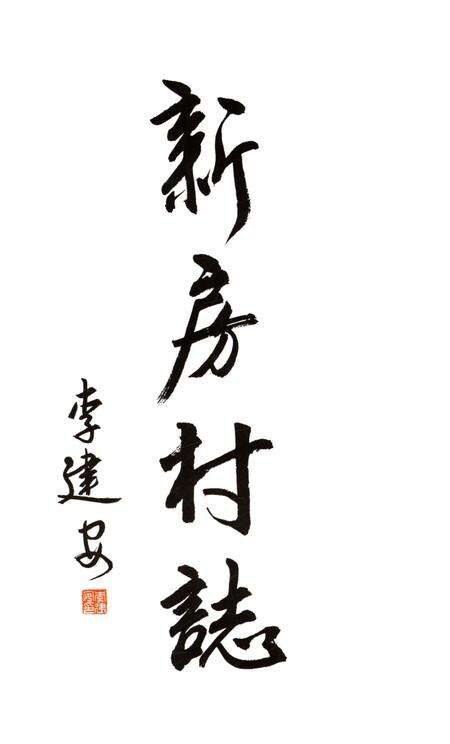 新房村誌
李建安